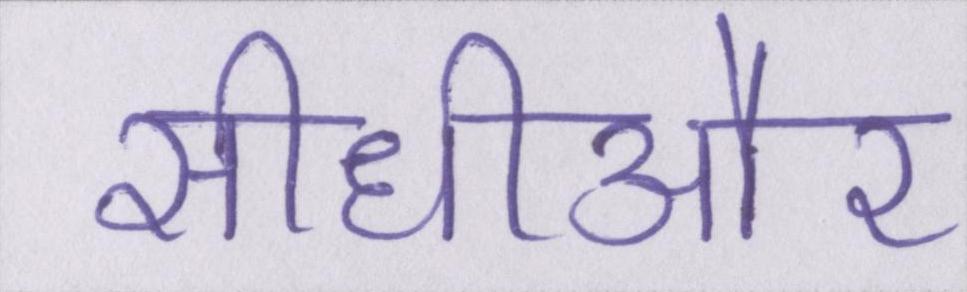 सीधीऔर